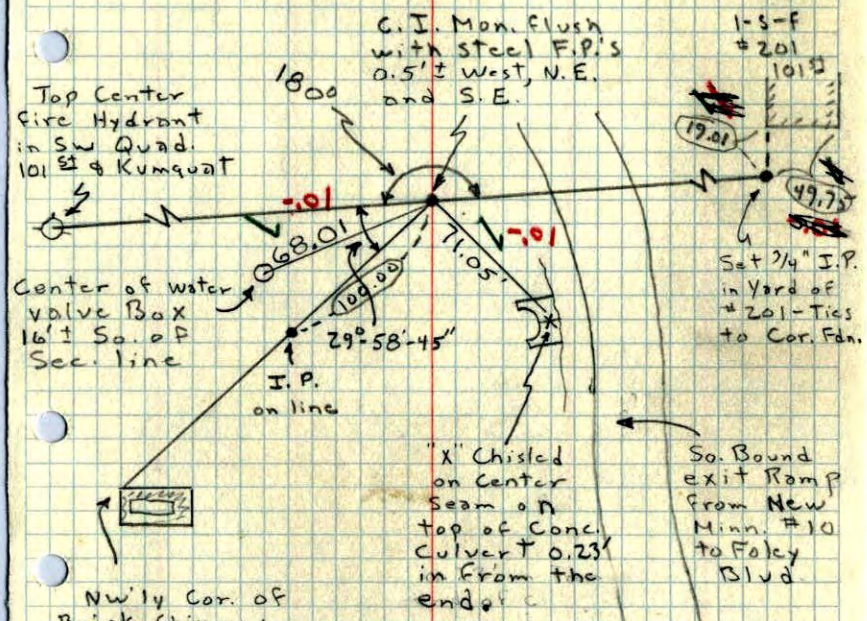 C. I. Mon. flush
with steel F.P.'s
0.5'± West, N.E.
and S.E.
1-S-F
#201
101st
1800
Top Center
Fire Hydrant
in SW Quad.
101 st & Kumquat
19.01
49.75
-.01
68.01
71.05'
-.01
100.00
29°-58'-45"
Center of water
valve Box
16'± So. of
Sec. line
I.P.
on line
Set 3/4" I.P.
in Yard of
#201-Ties
to Cor. Fdn.
"X" Chisled
on Center
Seam on
top of Conc.
Culvert 0.23'
in from the
end.
So. Bound
exit Ramp
from New
Minn. #10
to Foley
Blvd.
Nw'ly Cor. of